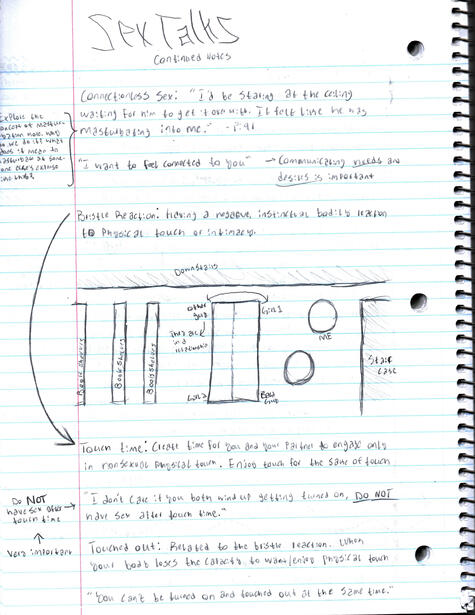 Sex Talks
Continued Notes
Connectionless Sex: "I'd be staring at the ceiling
waiting for him to get it over with. I felt like he was
masturbating into me." - P.41
Explore the
concept of mastur-
bation more. why
do we do it? what
does it mean to
masturbate at some-
one else's expense
"I want to feel connected to you" → Communicating needs and
desires is important
Bristle Reaction: Having a negative, instinctual bodily reaction
to Physical touch or intimacy.
Downstairs
Book shelves
Book Shelves
Book Shelves
other
Girl 1
in a
relationship
Girl 2
ME
Stair
case
Touch time: Create time for you and your Partner to engage only
in nonsexual physical touch. Enjoy touch for the sake of touch
Do NOT
have sex after →
touch time
↑
Very important
"I don't care if you both wind up getting turned on, DO NOT
have sex after touch time."
Touched out: Related to the bristle reaction. When
your body loses the capacity to want/enjoy physical touch
"You can't be turned on and touched out at the same time."